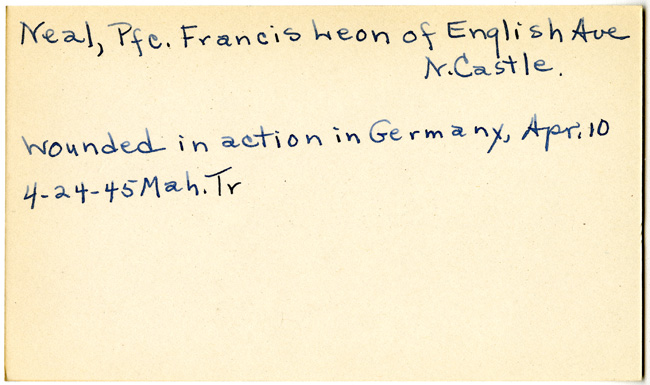 Neal, Pfc. Francis Leon of English Ave
N. Castle.
Wounded in action in Germany, Apr. 10
4-24-45 Mah. Tr